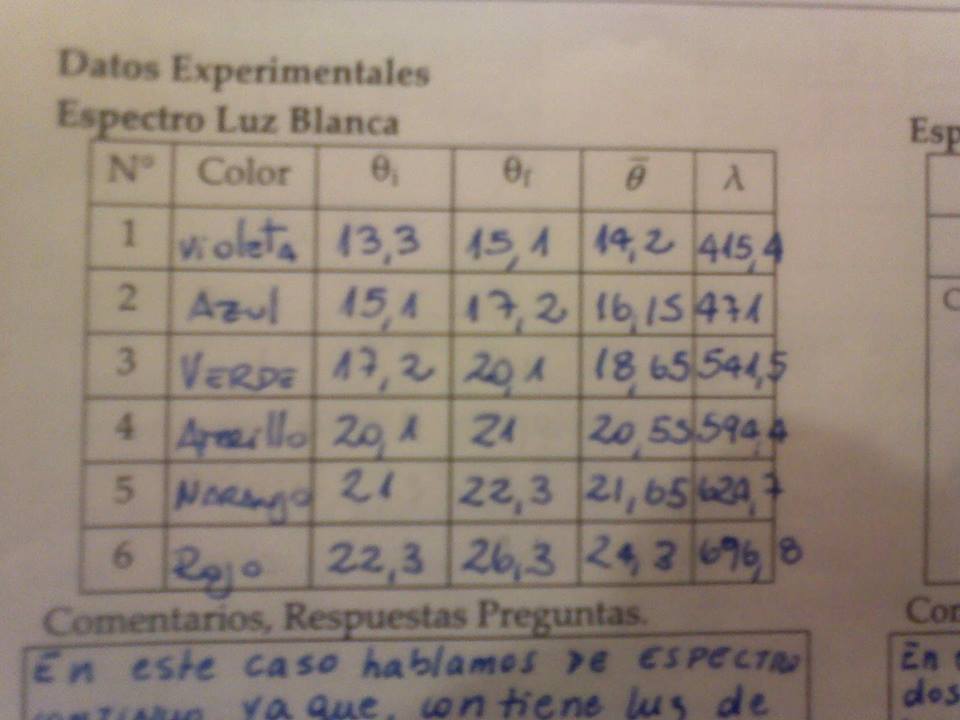 Datos Experimentales
Espectro Luz Blanca
Esp
N° Color θi θf θ̄ λ
1 Violeta 13,3 15,1 14,2 415,4
2 Azul 15,1 17,2 16,15 471
3 VERDE 17,2 20,1 18,65 541,5
4 Amarillo 20,1 21 20,55 594,4
5 Naranjo 21 22,3 21,65 624,7
6 Rojo 22,3 26,3 24,3 696,8
Comentarios, Respuestas Preguntas.
Con
En este caso hablamos DE ESPECTRO
continuo ya que, contiene luz de
En
dos